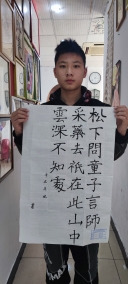 松下問童子言師
采藥去祇在此山中
雲深不知處